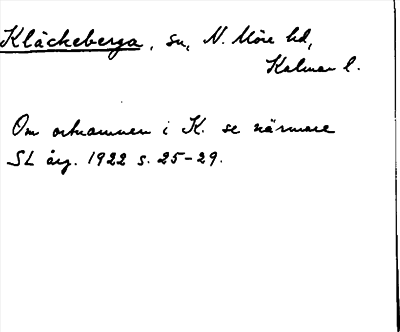 Kläckeberga, sn, N. Möre hd,
Kalmar l.
Om ortnamnen i K. se närmare
SL årg. 1922 s. 25-29.